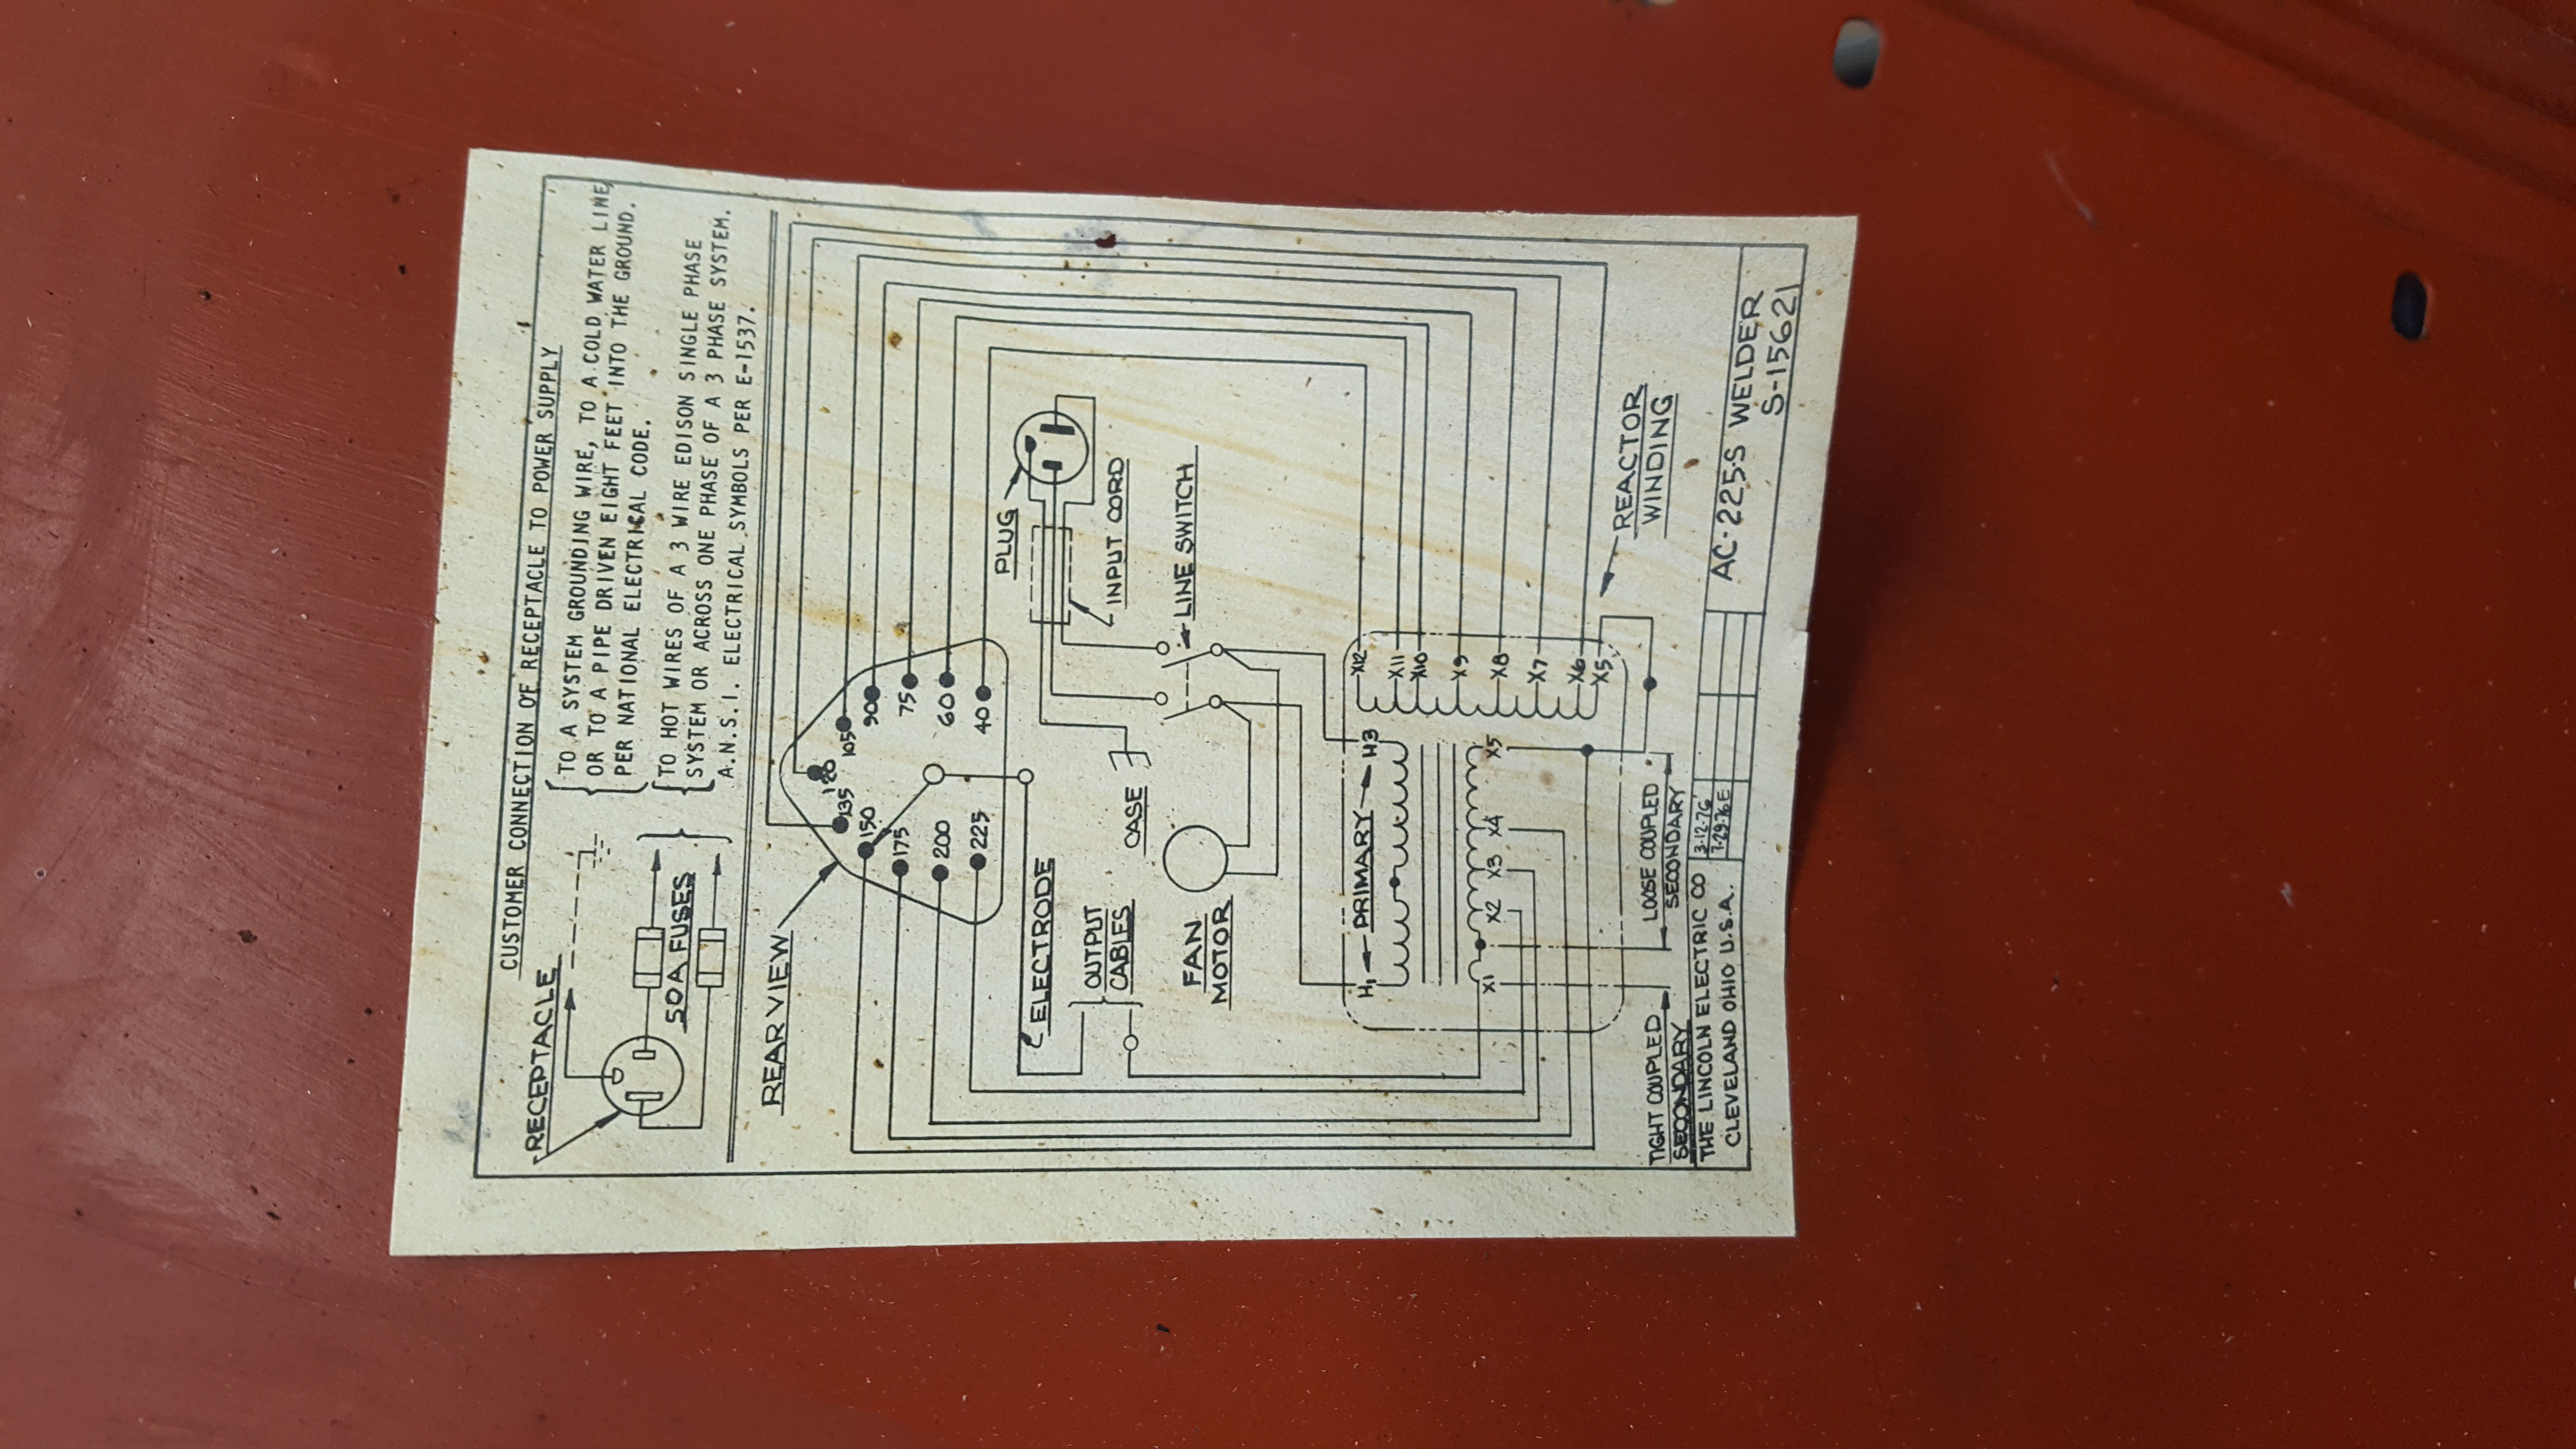 CUSTOMER CONNECTION OF RECEPTACLE TO POWER SUPPLY
RECEPTACLE
TO A SYSTEM GROUNDING WIRE, TO A COLD WATER LINE,
OR TO A PIPE DRIVEN EIGHT FEET INTO THE GROUND.
PER NATIONAL ELECTRICAL CODE.
50A FUSES
TO HOT WIRES OF A 3 WIRE EDISON SINGLE PHASE
SYSTEM OR ACROSS ONE PHASE OF A 3 PHASE SYSTEM.
A.N.S.I. ELECTRICAL SYMBOLS PER E-1537.
REAR VIEW
120
135
105
150
90
175
75
200
60
225
40
PLUG
ELECTRODE
INPUT CORD
OUTPUT
CABLES
CASE
LINE SWITCH
FAN
MOTOR
H1
PRIMARY
H3
X12
X11
X10
X9
X8
X7
X6
X5
X1
X2
X3
X4
X5
REACTOR
WINDING
TIGHT COUPLED
SECONDARY
LOOSE COUPLED
SECONDARY
THE LINCOLN ELECTRIC CO
CLEVELAND OHIO U.S.A.
3-12-76
1-29-76 E
AC-225-S WELDER
S-15621